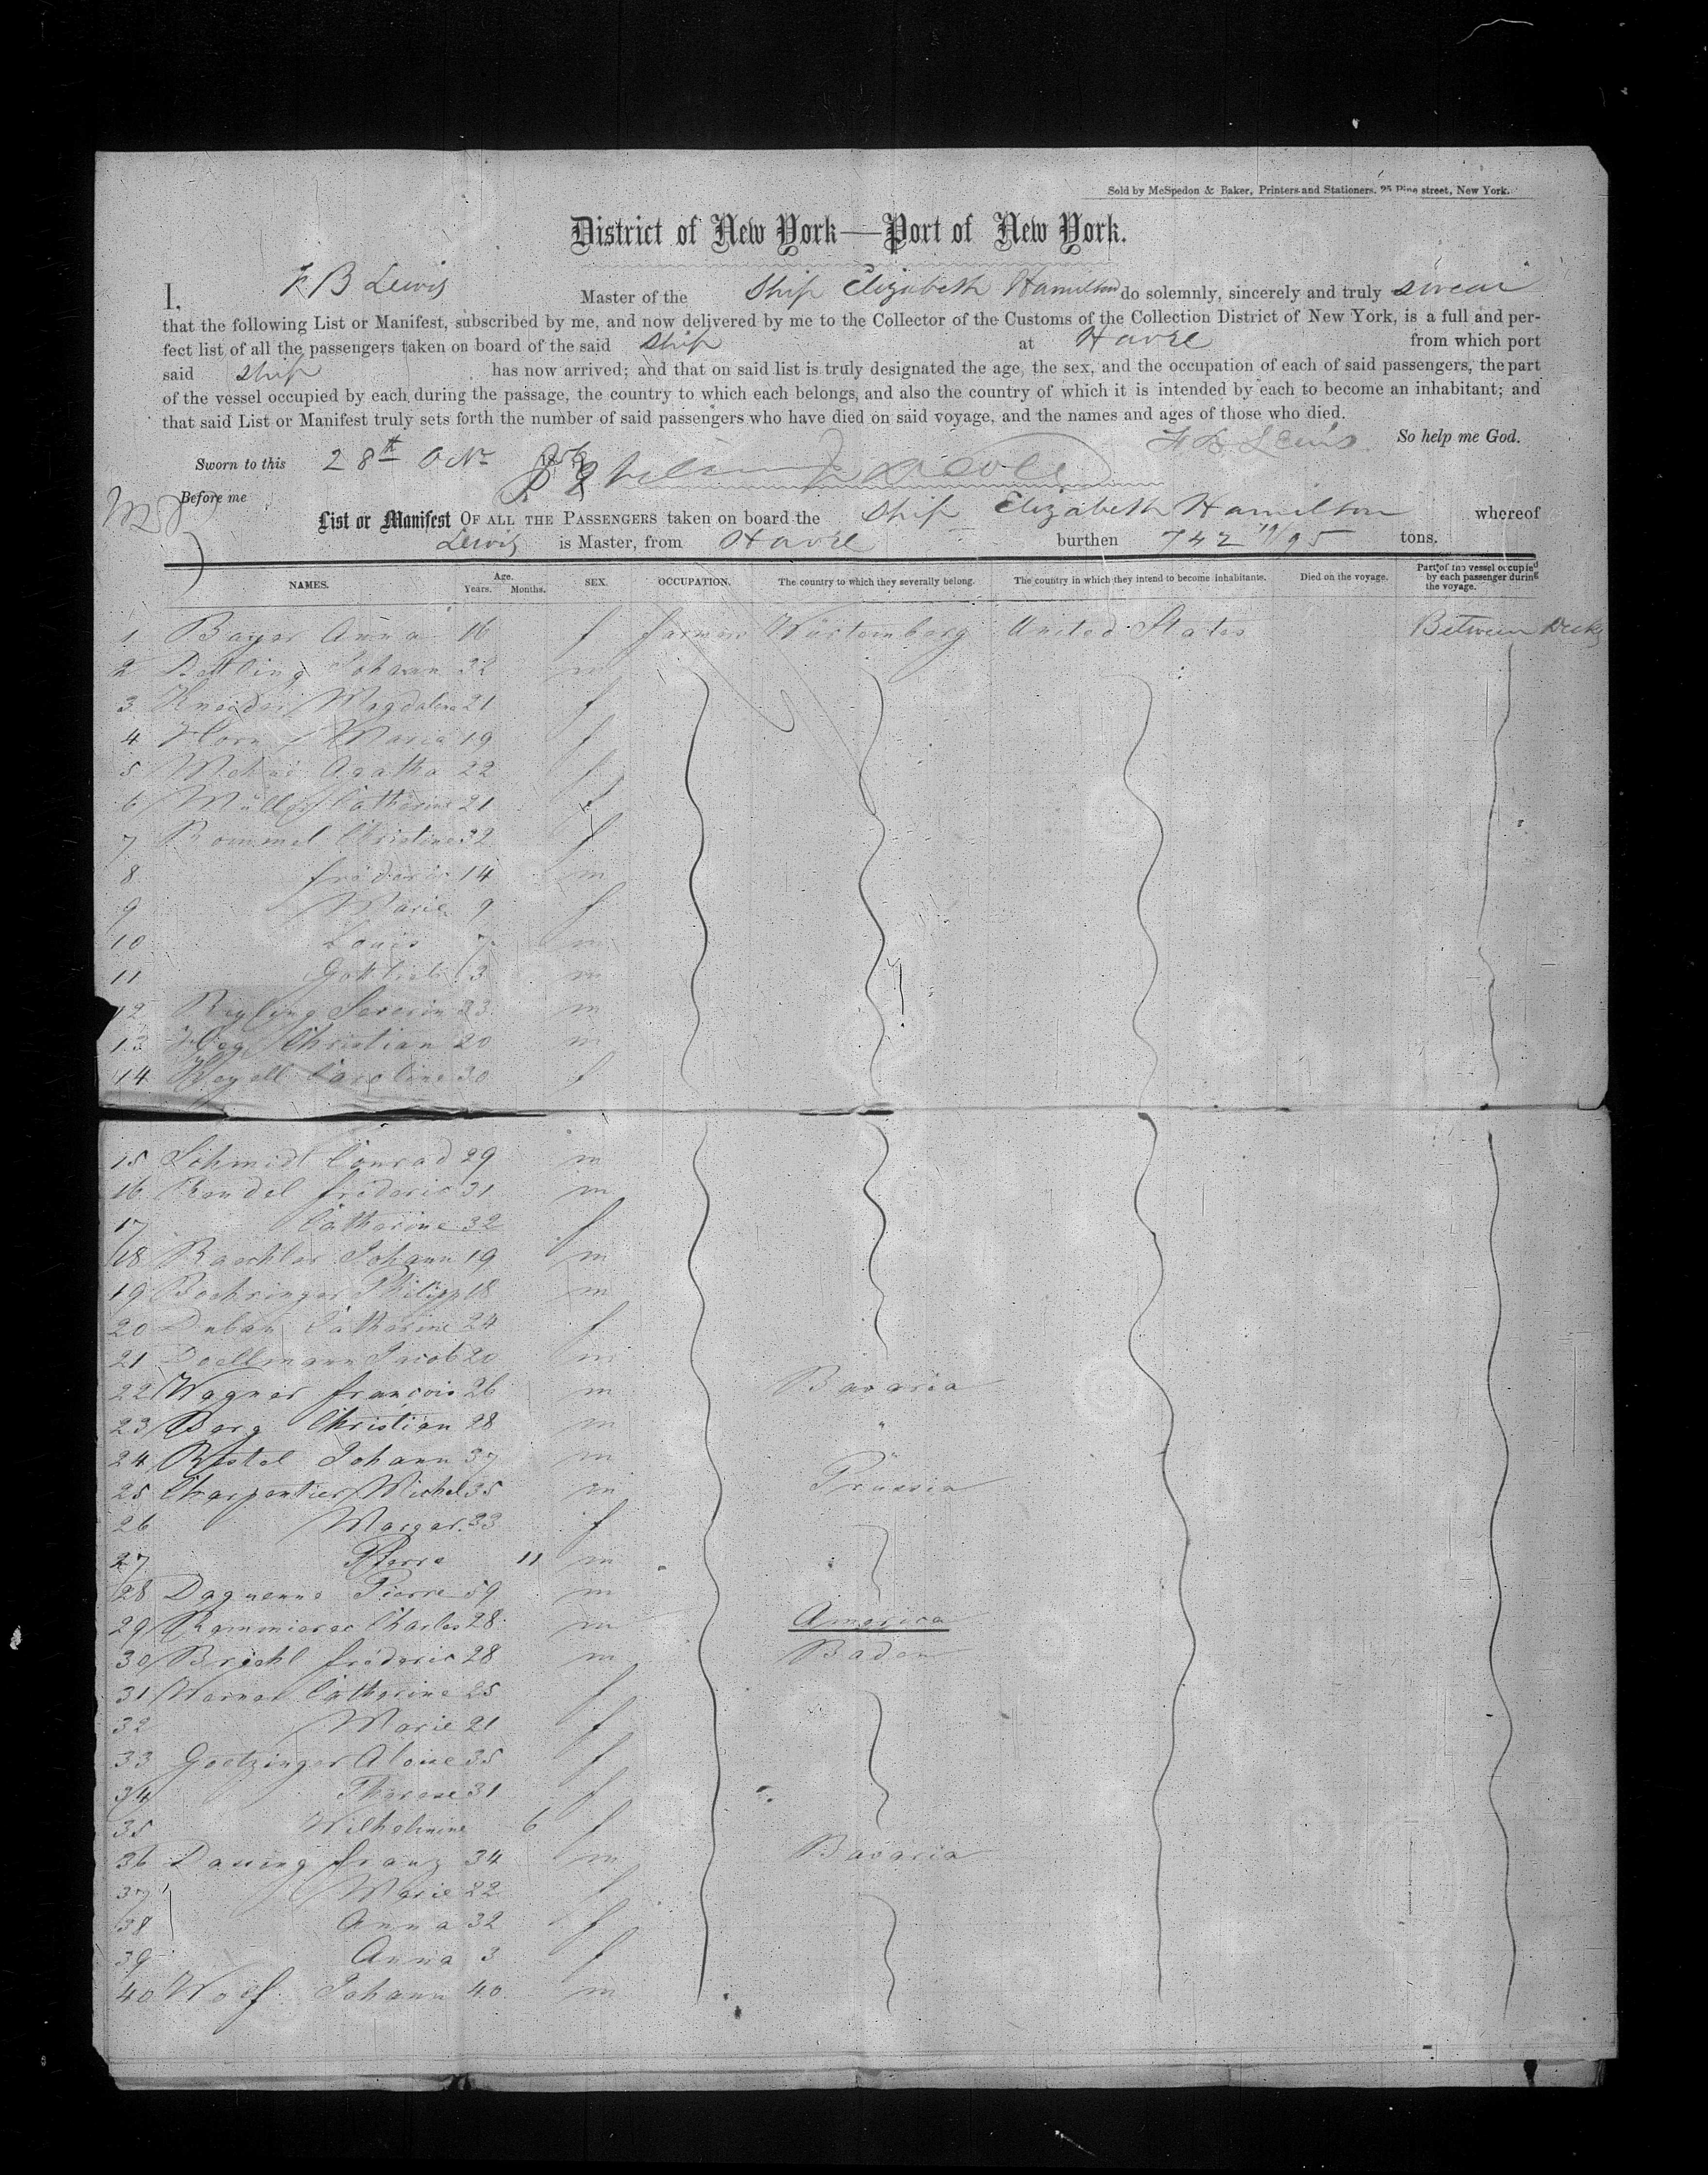 Sold by McSpedon & Baker, Printers and Stationers, 25 Pine street, New York.
District of New York—Port of New York.
I, F B Lewis Master of the Ship Elizabeth Hamilton do solemnly, sincerely and truly swear
that the following List or Manifest, subscribed by me, and now delivered by me to the Collector of the Customs of the Collection District of New York, is a full and per-
fect list of all the passengers taken on board of the said Ship at Havre from which port
said Ship has now arrived; and that on said list is truly designated the age, the sex, and the occupation of each of said passengers, the part
of the vessel occupied by each during the passage, the country to which each belongs, and also the country of which it is intended by each to become an inhabitant; and
that said List or Manifest truly sets forth the number of said passengers who have died on said voyage, and the names and ages of those who died.
F B Lewis So help me God.
Sworn to this 28th Octr
Before me
List or Manifest OF ALL THE PASSENGERS taken on board the Ship Elizabeth Hamilton whereof
Lewis is Master, from Havre burthen 742 19/95 tons.
NAMES. Age. Years. Months. SEX. OCCUPATION. The country to which they severally belong. The country in which they intend to become inhabitants. Died on the voyage. Part of the vessel occupied by each passenger during the voyage.
1 Bayer Anna 16 f farmers Würtemberg United States Between Decks
2 Dettling Johann 32 m
3 Kneider Magdalena 21 f
4 Horn Maria 19 f
5 Agatha 22 f
6 Müller Catherine 21 f
7 Rommel Christine 32 f
8 frederic 14 m
9 Marie 9 f
10 Louis 7 m
11 Gottlieb 3 m
12 Severin 33 m
13 Christian 20 m
14 Caroline 30 f
15 Schmidt Conrad 29 m
16 Rendel frederic 31 m
17 Catherine 32 f
18 Baechler Johann 19 m
19 Boehringer Philipp 18 m
20 Duban Catherine 24 f
21 Doellmann Jacob 20 m
22 Wagner françois 26 m Bavaria
23 Berg Christian 28 m "
24 Johann 37 m
25 Charpentier Michel 35 m Prussia
26 Margar. 33 f
27 Pierre 11 m
28 Daguenne Pierre 59 m
29 Charles 28 m America
30 Briehl frederic 28 m Baden
31 Werner Catherine 25 f
32 Marie 21 f
33 Goetzinger Aloise 35 f
34 Therese 31 f
35 Wilhelmine 6 f
36 Dassing franz 34 m Bavaria
37 Marie 22 f
38 Anna 32 f
39 Anna 3 f
40 Wolf Johann 40 m